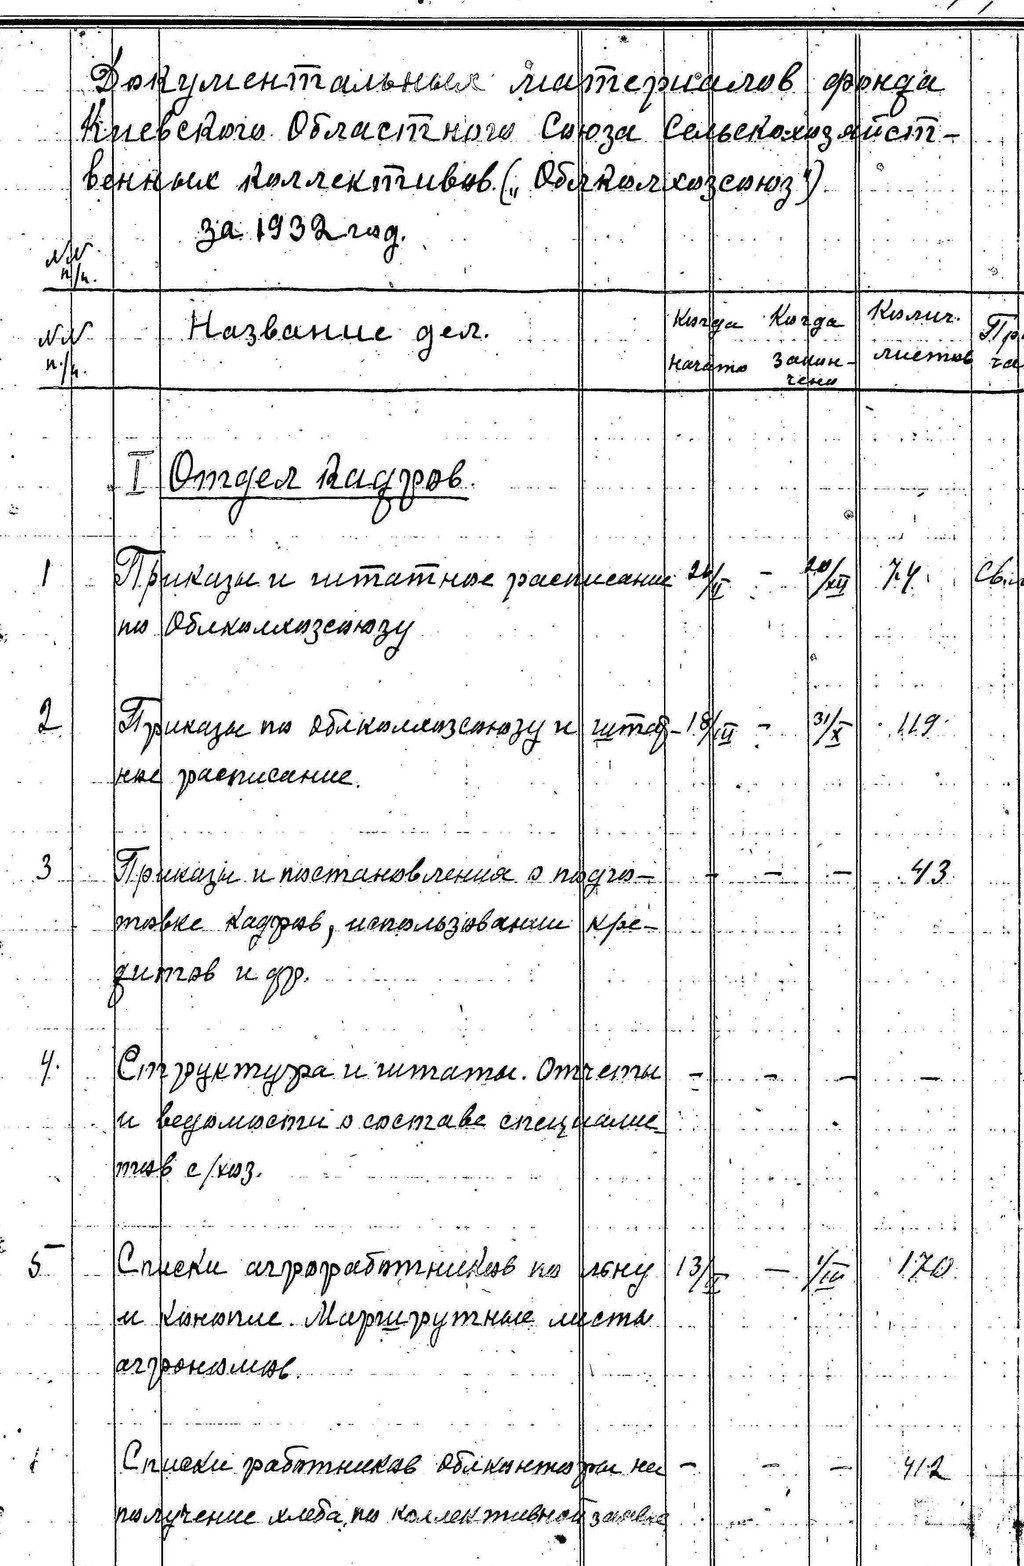 Документальных материалов фонда
Киевского Областного Союза Сельскохозяйст-
венных коллективов. („Облколхозсоюз")
за 1932 год.
NN
п/п.
NN Название дел. Когда Когда Колич.
п./п. начато закон- листов
чено
I Отдел Кадров.
1 Приказы и штатное расписание 26/II - 20/XII 74.
по Облколхозсоюзу
2 Приказы по Облколхозсоюзу и штат- 18/III - 31/X 119
ное расписание.
3 Приказы и постановления о подго- - - - 43
товке кадров, использовании кре-
дитов и др.
4. Структура и штаты. Отчеты - - - -
и ведомости о составе специалис-
тов с/хоз.
5 Списки агроработников по льну 13/II - 1/III 170
и конопле. Маршрутные листы
агрономов.
Списки работников Облконторы на - - - 412
получение хлеба по коллективной заявке